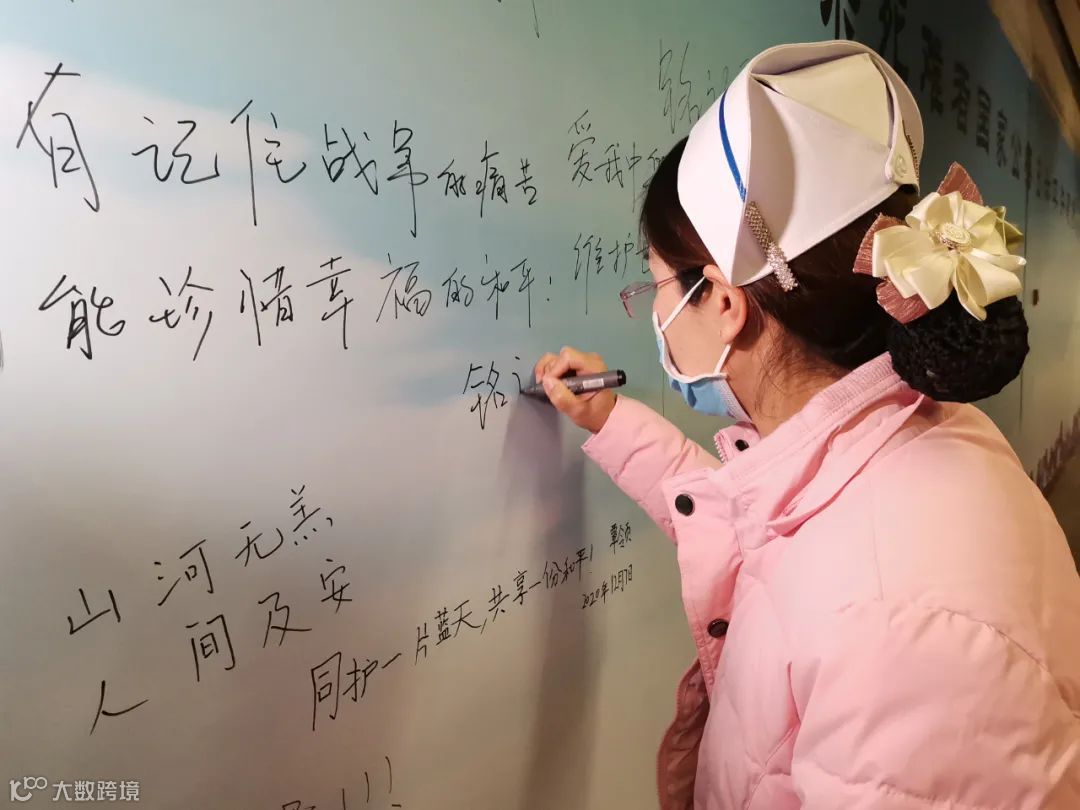 铭记
爱我中
维护
有记住战争的痛苦
能珍惜幸福的和平!
铭
山河无恙
人间及安
同护一片蓝天,共享一份和平!
2020年12月7日
国家公
大数跨境